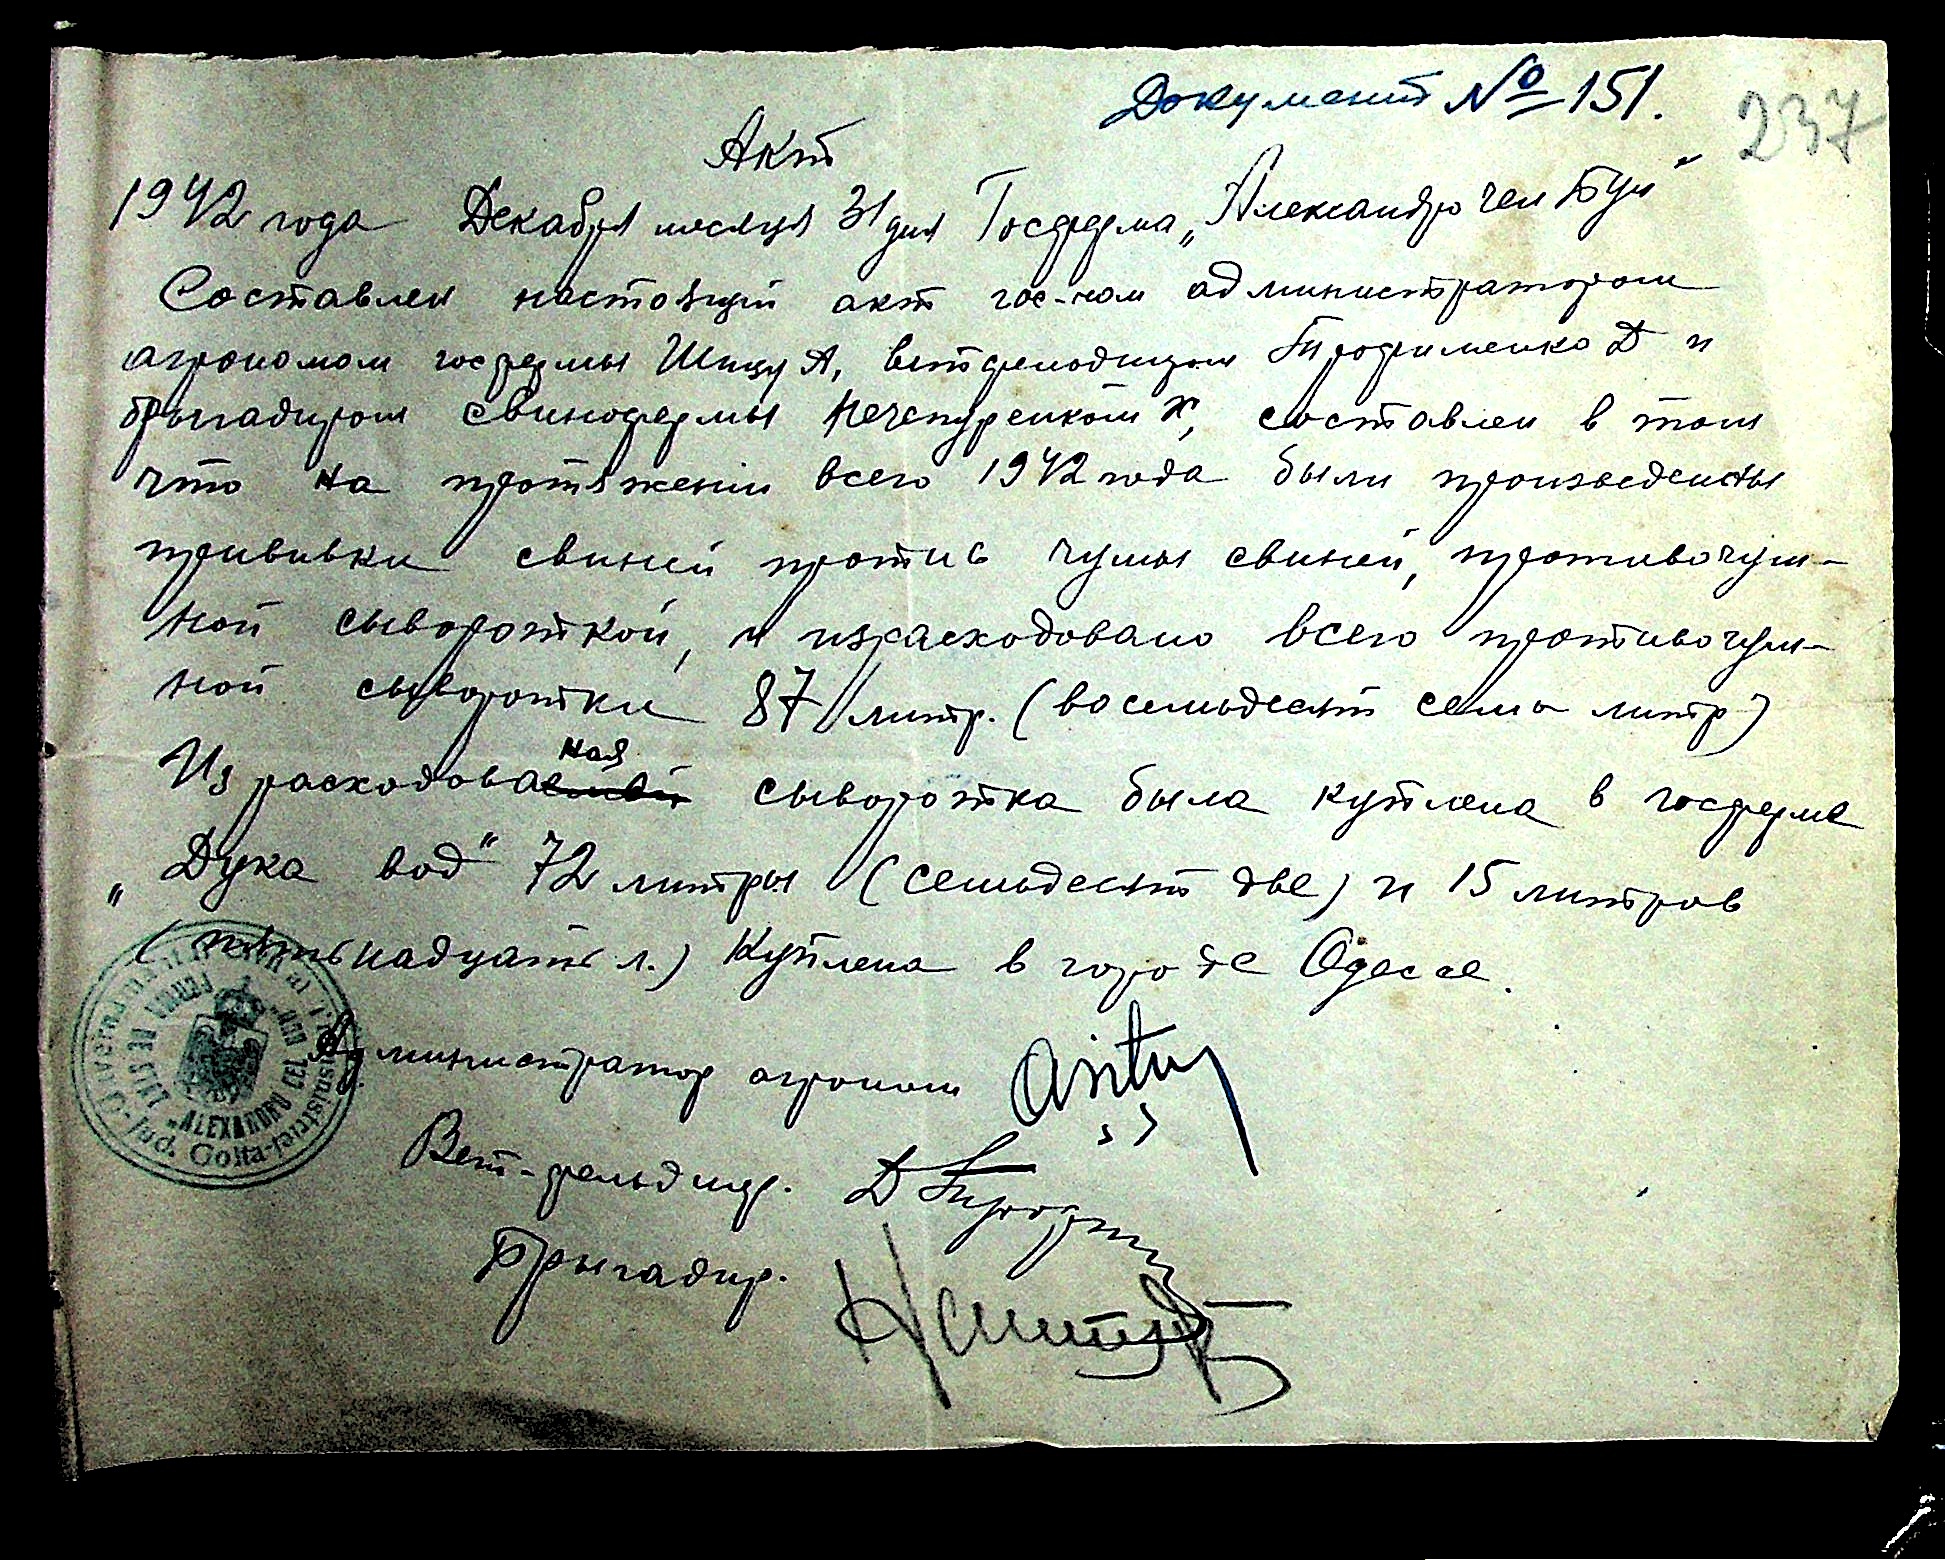 Документ № 151.
237
Акт
1942 года Декабря месяца 31 дня Госферма „Александро чел Бун"
Составлен настоящий акт гос-ном администратором
агрономом госфермы Шицу А, ветфельдшером Трофименко Д и
бригадиром свинофермы Нечепуренком Х, составлен в том
что на протяжении всего 1942 года были произведены
прививки свиней против чумы свиней, противочум-
ной сывороткой, и израсходовано всего противочум-
ной сыворотки 87 литр. (восемьдесят семь литр)
Израсходованая сыворотка была куплена в госферме
„Дука вод" 72 литры (семьдесят две) и 15 литров
(пятьнадцать л.) Куплена в городе Одессе.
Администратор агроном
Вет-фельдшер. Д Трофим
Бригадир.
FERMA DE STAT
"ALEXANDRU CEL BUN"
Jud. Golta